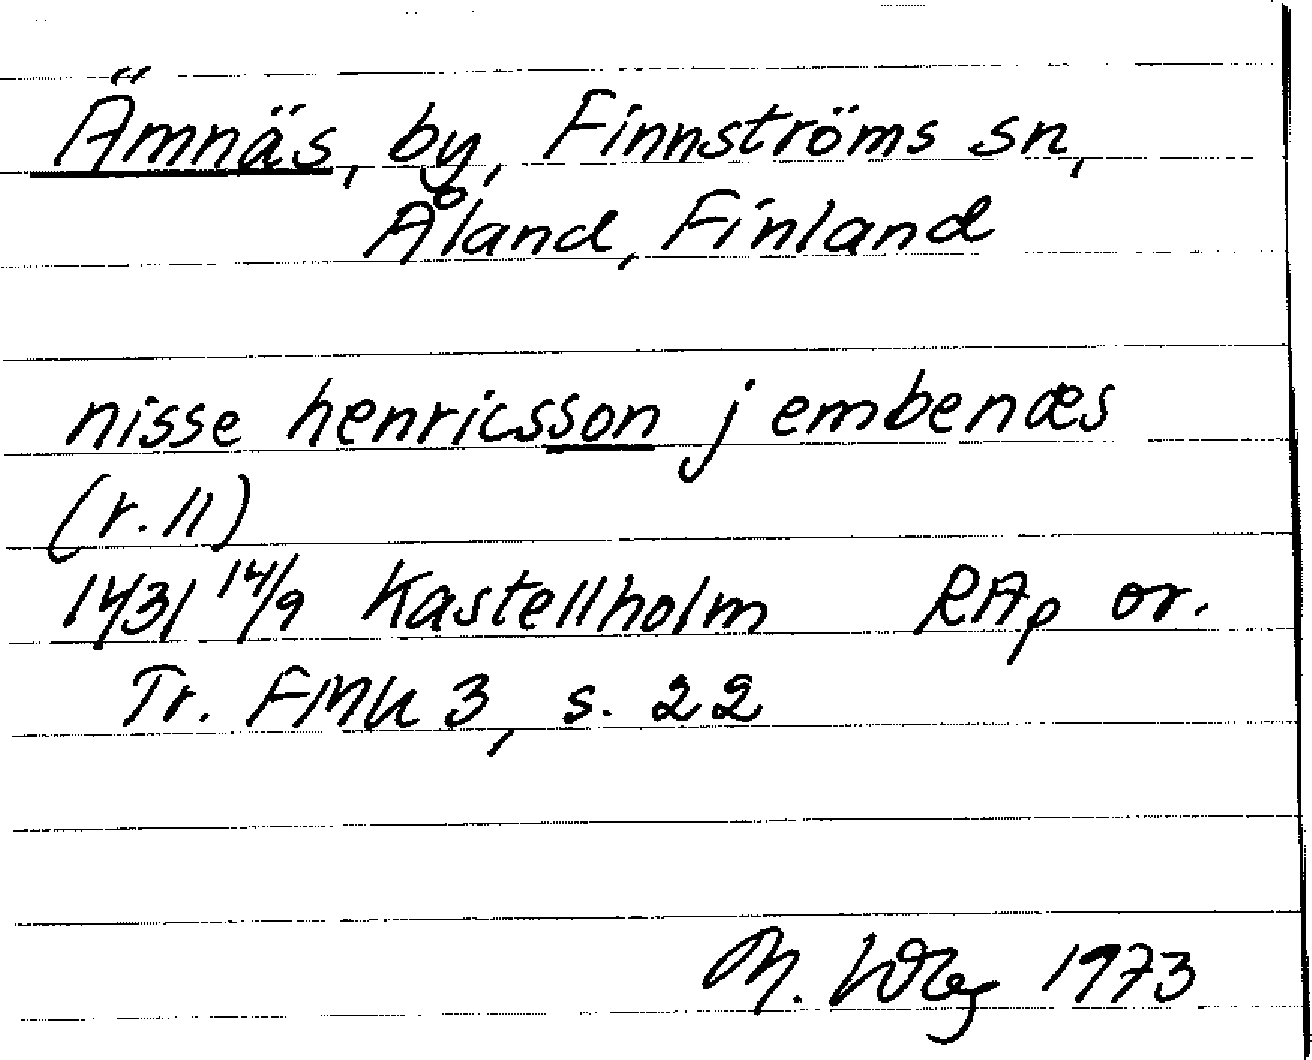 Ämnäs, by, Finnströms sn,
Åland, Finland
nisse henricsson j embenæs
(r. 11)
1431 14/9 Kastellholm RAp or.
Tr. FMU 3, s. 22
M. 1973